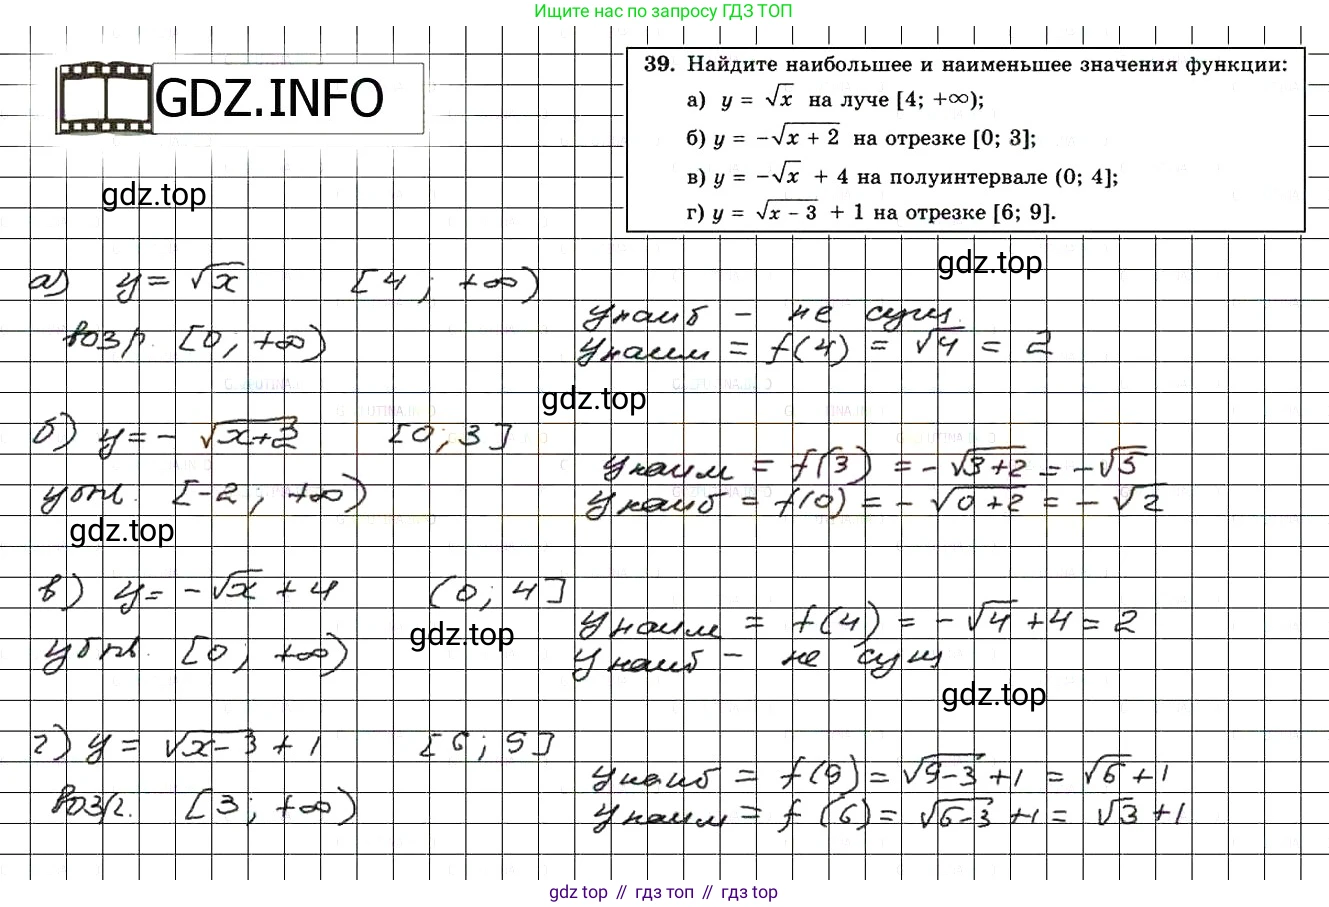 Ищите нас по запросу ГДЗ ТОП
GDZ.INFO
39. Найдите наибольшее и наименьшее значения функции:
а) y = √x на луче [4; +∞);
б) y = -√(x + 2) на отрезке [0; 3];
в) y = -√x + 4 на полуинтервале (0; 4];
г) y = √(x - 3) + 1 на отрезке [6; 9].
gdz.top
gdz.top
а) y = √x [4; +∞)
возр. [0; +∞)
y наиб - не сущ.
y наим = f(4) = √4 = 2
gdz.top
б) y = - √(x+2) [0; 3]
убыв. [-2; +∞)
y наим = f(3) = -√(3+2) = -√5
y наиб = f(0) = -√(0+2) = -√2
gdz.top
в) y = -√x + 4 (0; 4]
убыв. [0; +∞)
y наим = f(4) = -√4 + 4 = 2
y наиб - не сущ
gdz.top
gdz.top
г) y = √(x-3) + 1 [6; 9]
возр. [3; +∞)
y наиб = f(9) = √(9-3) + 1 = √6 + 1
y наим = f(6) = √(6-3) + 1 = √3 + 1
gdz top // гдз топ // гдз top